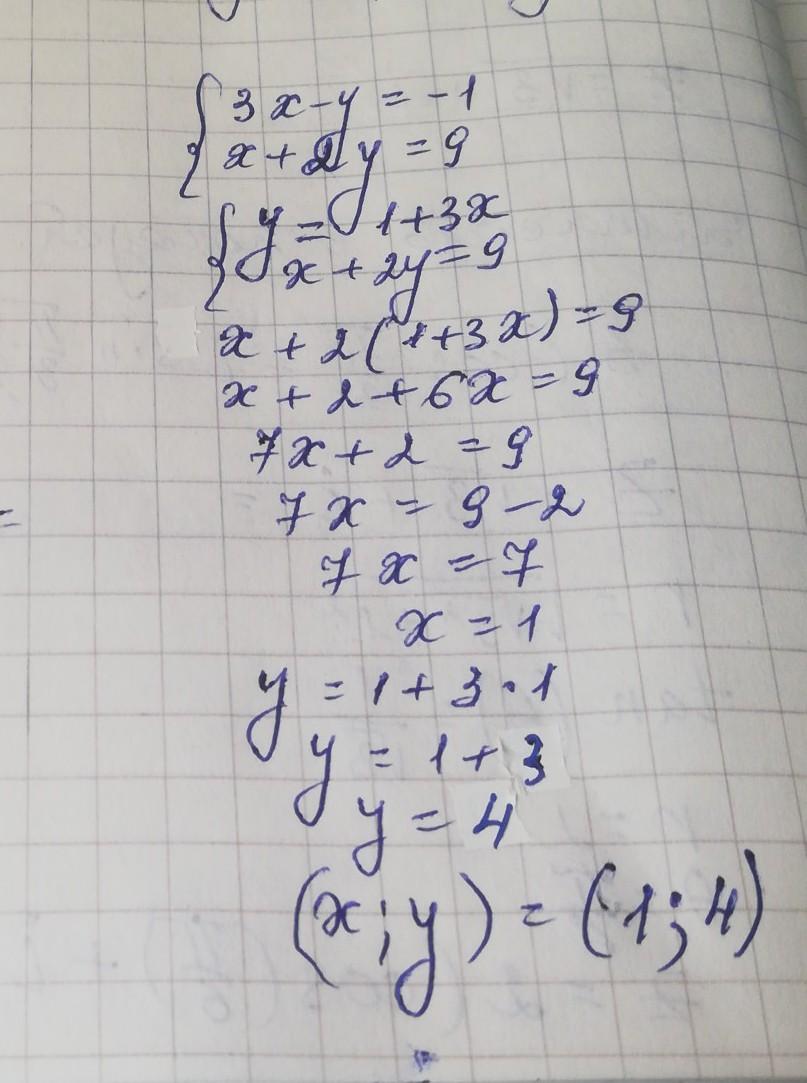 3x-y=-1
x+2y=9
y=1+3x
x+2y=9
x+2(1+3x)=9
x+2+6x=9
7x+2=9
7x=9-2
7x=7
x=1
y=1+3·1
y=1+3
y=4
(x;y)=(1;4)